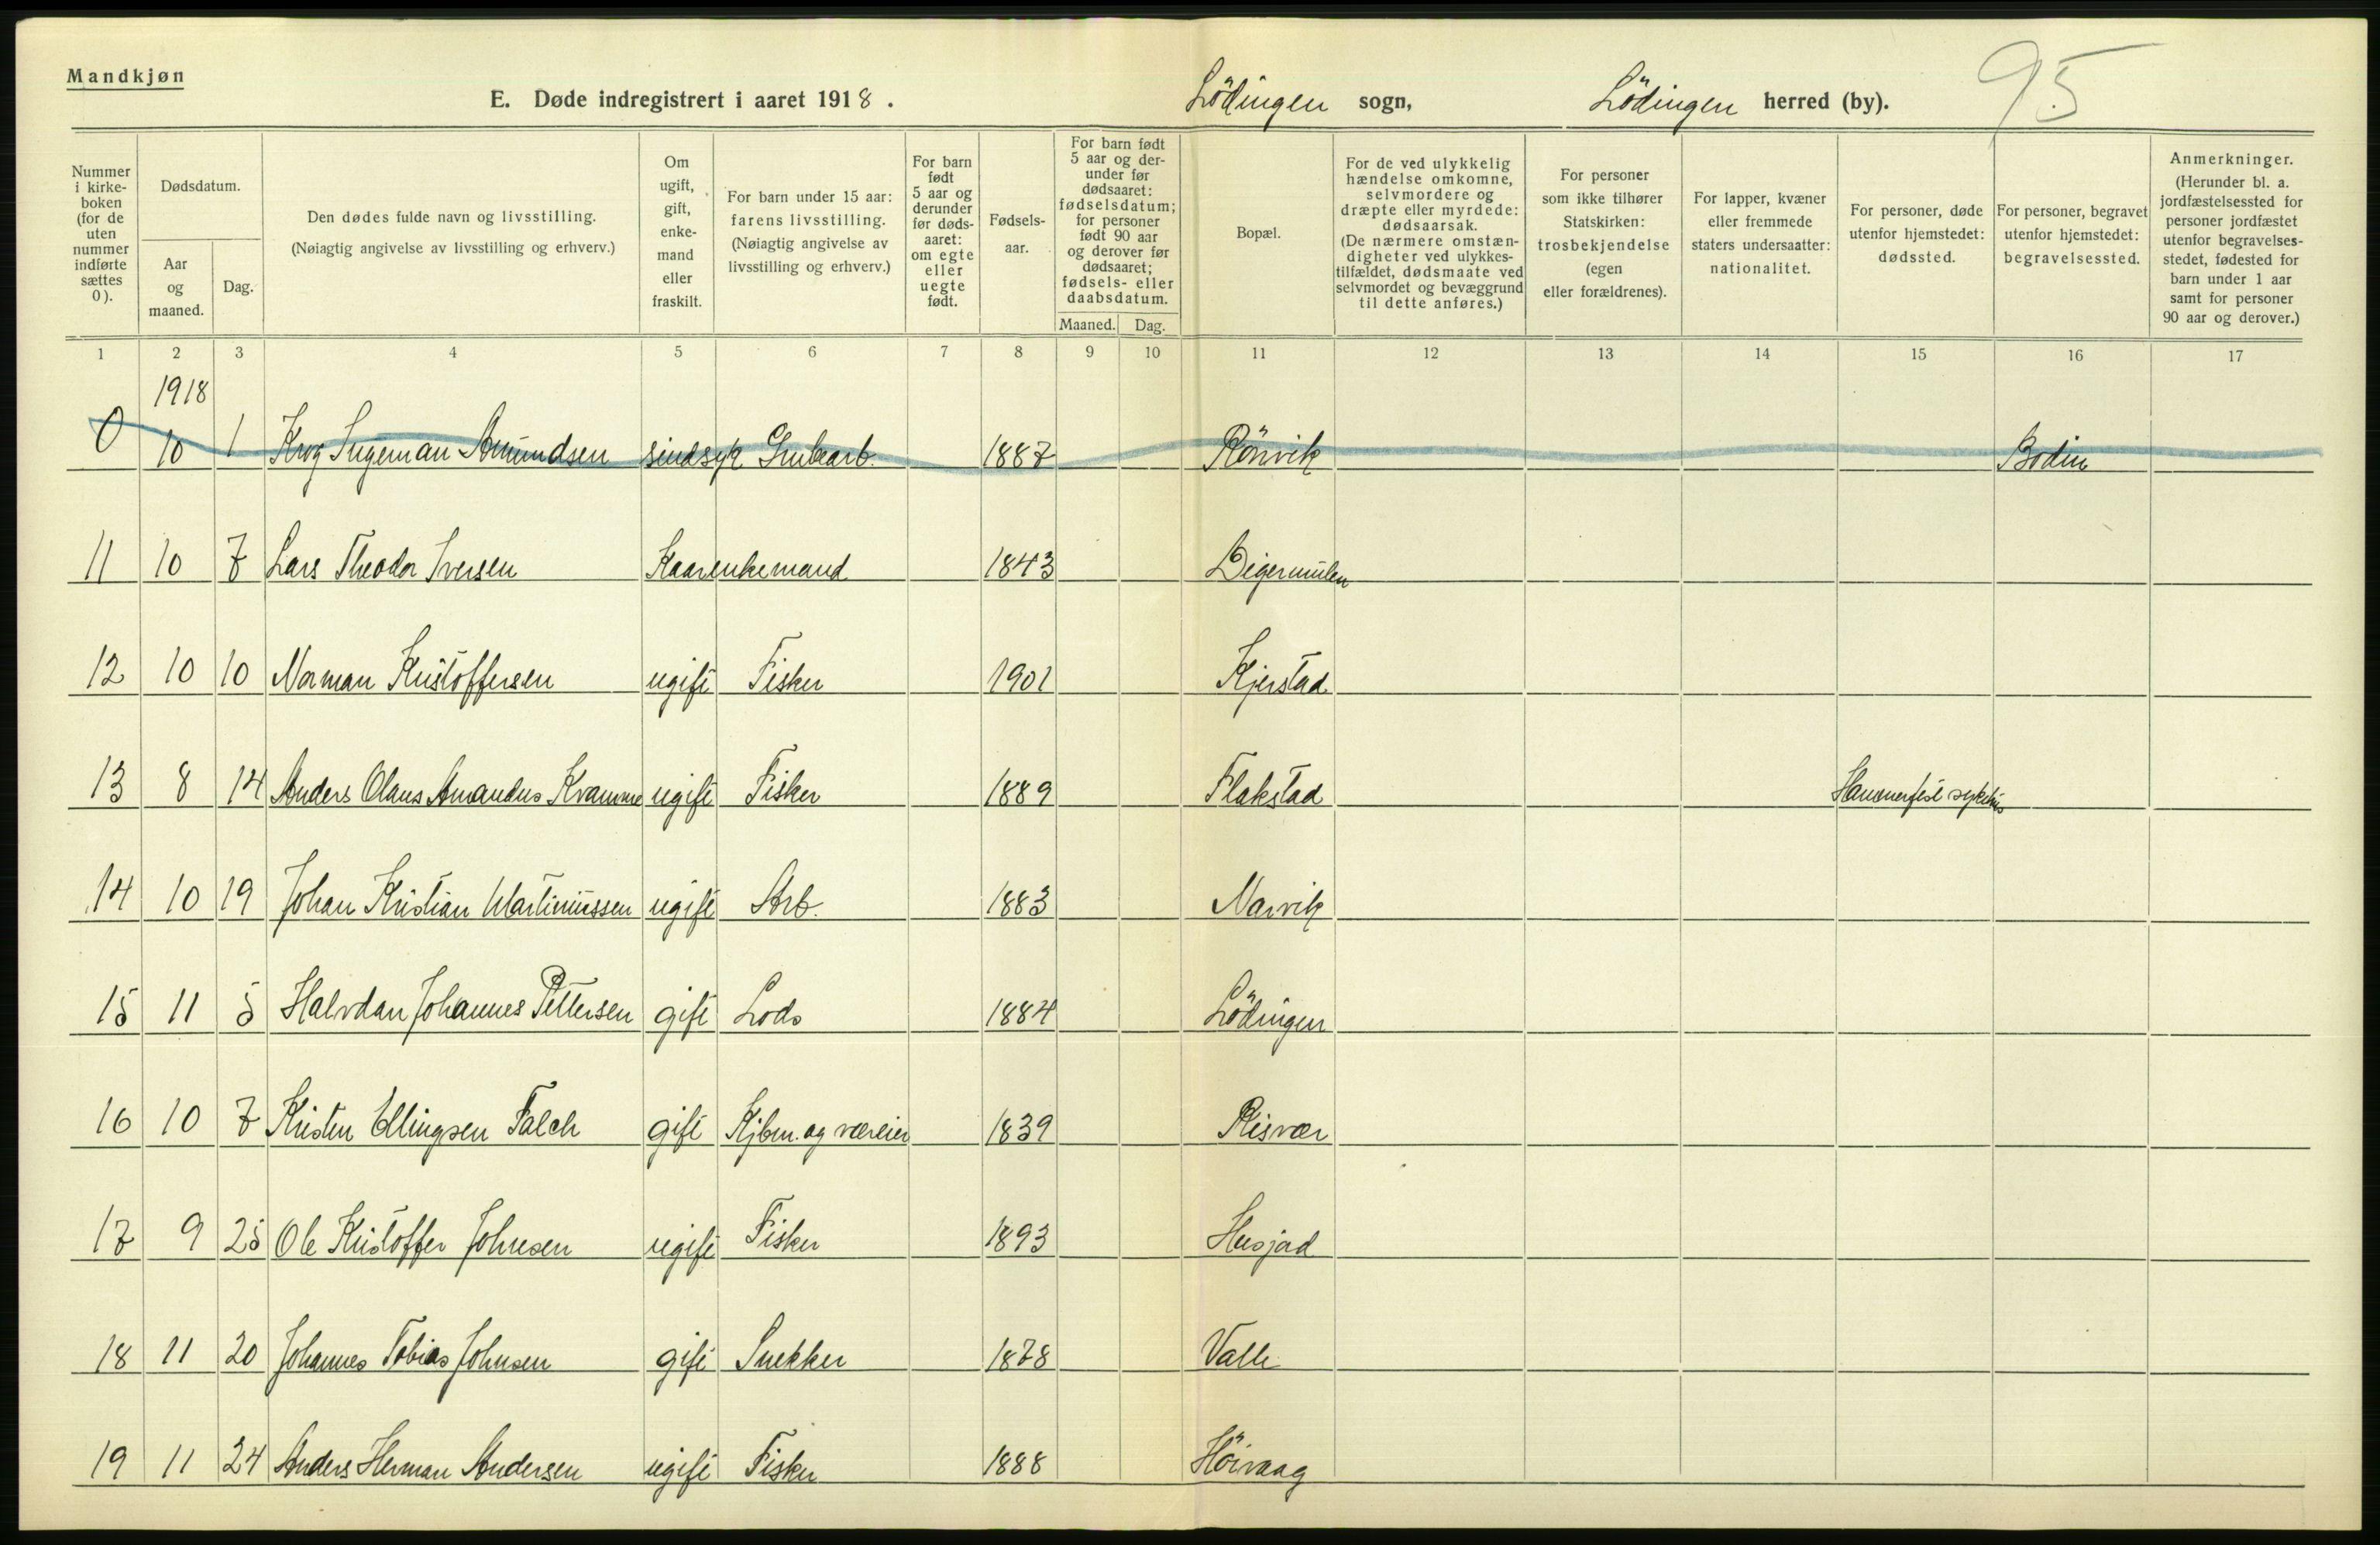 Mandkjøn
E. Døde indregistrert i aaret 1918. Lödingen sogn, Lödingen herred (by). 95
Nummer i kirkeboken (for de uten nummer indførte sættes 0).
Dødsdatum.
Aar og maaned.
Dag.
Den dødes fulde navn og livsstilling.
(Nøiagtig angivelse av livsstilling og erhverv.)
Om ugift, gift, enkemand eller fraskilt.
For barn under 15 aar: farens livsstilling.
(Nøiagtig angivelse av livsstilling og erhverv.)
For barn født 5 aar og derunder før dødsaaret: om egte eller uegte født.
Fødselsaar.
For barn født 5 aar og derunder før dødsaaret: fødselsdatum; for personer født 90 aar og derover før dødsaaret; fødsels- eller daabsdatum.
Maaned. Dag.
Bopæl.
For de ved ulykkelig hændelse omkomne, selvmordere og dræpte eller myrdede: dødsaarsak.
(De nærmere omstændigheter ved ulykkestilfældet, dødsmaate ved selvmordet og bevæggrund til dette anføres.)
For personer som ikke tilhører Statskirken: trosbekjendelse (egen eller forældrenes).
For lapper, kvæner eller fremmede staters undersaatter: nationalitet.
For personer, døde utenfor hjemstedet: dødssted.
For personer, begravet utenfor hjemstedet: begravelsessted.
Anmerkninger.
(Herunder bl. a. jordfæstelsessted for personer jordfæstet utenfor begravelsesstedet, fødested for barn under 1 aar samt for personer 90 aar og derover.)
1 2 3 4 5 6 7 8 9 10 11 12 13 14 15 16 17
1918
0 10 1 Krog Ingeman Amundsen sindsyk Grubearb. 1887 Rönvik Bodin
11 10 7 Lars Theodor Iversen Kaarenkemand 1843 Digermulen
12 10 10 Norman Kristoffersen ugift Fisker 1901 Kjerstad
13 8 14 Anders Olaus Amandus Kvamme ugift Fisker 1889 Flakstad Hammerfest sykehus
14 10 19 Johan Kristian Martinussen ugift Arb. 1883 Narvik
15 11 5 Halvdan Johannes Pettersen gift Lods 1884 Lödingen
16 10 7 Kristen Ellingsen Falch gift Kjbm. og væreier 1839 Risvær
17 9 25 Ole Kristoffer Johnsen ugift Fisker 1893 Husjad
18 11 20 Johannes Tobias Johnsen gift Snekker 1878 Valle
19 11 24 Anders Herman Andersen ugift Fisker 1888 Höivaag